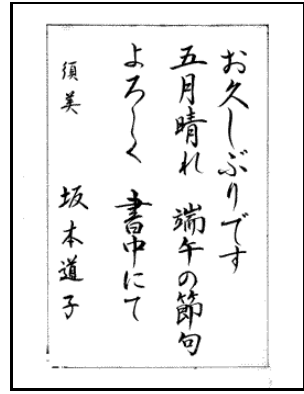 お久しぶりです
五月晴れ 端午の節句
よろしく 書中にて
須美 坂本道子